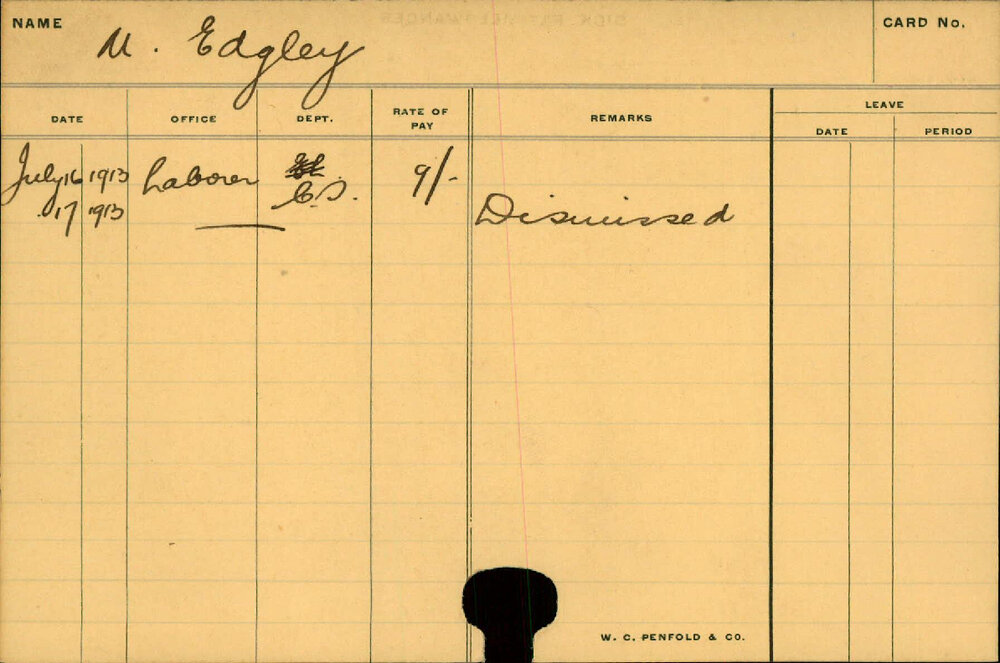 NAME
M. Edgley
CARD No.
DATE OFFICE DEPT. RATE OF PAY REMARKS LEAVE
DATE PERIOD
July 16 1913 Laborer C.S. 9/-
17 1913 Dismissed
W. C. PENFOLD & CO.